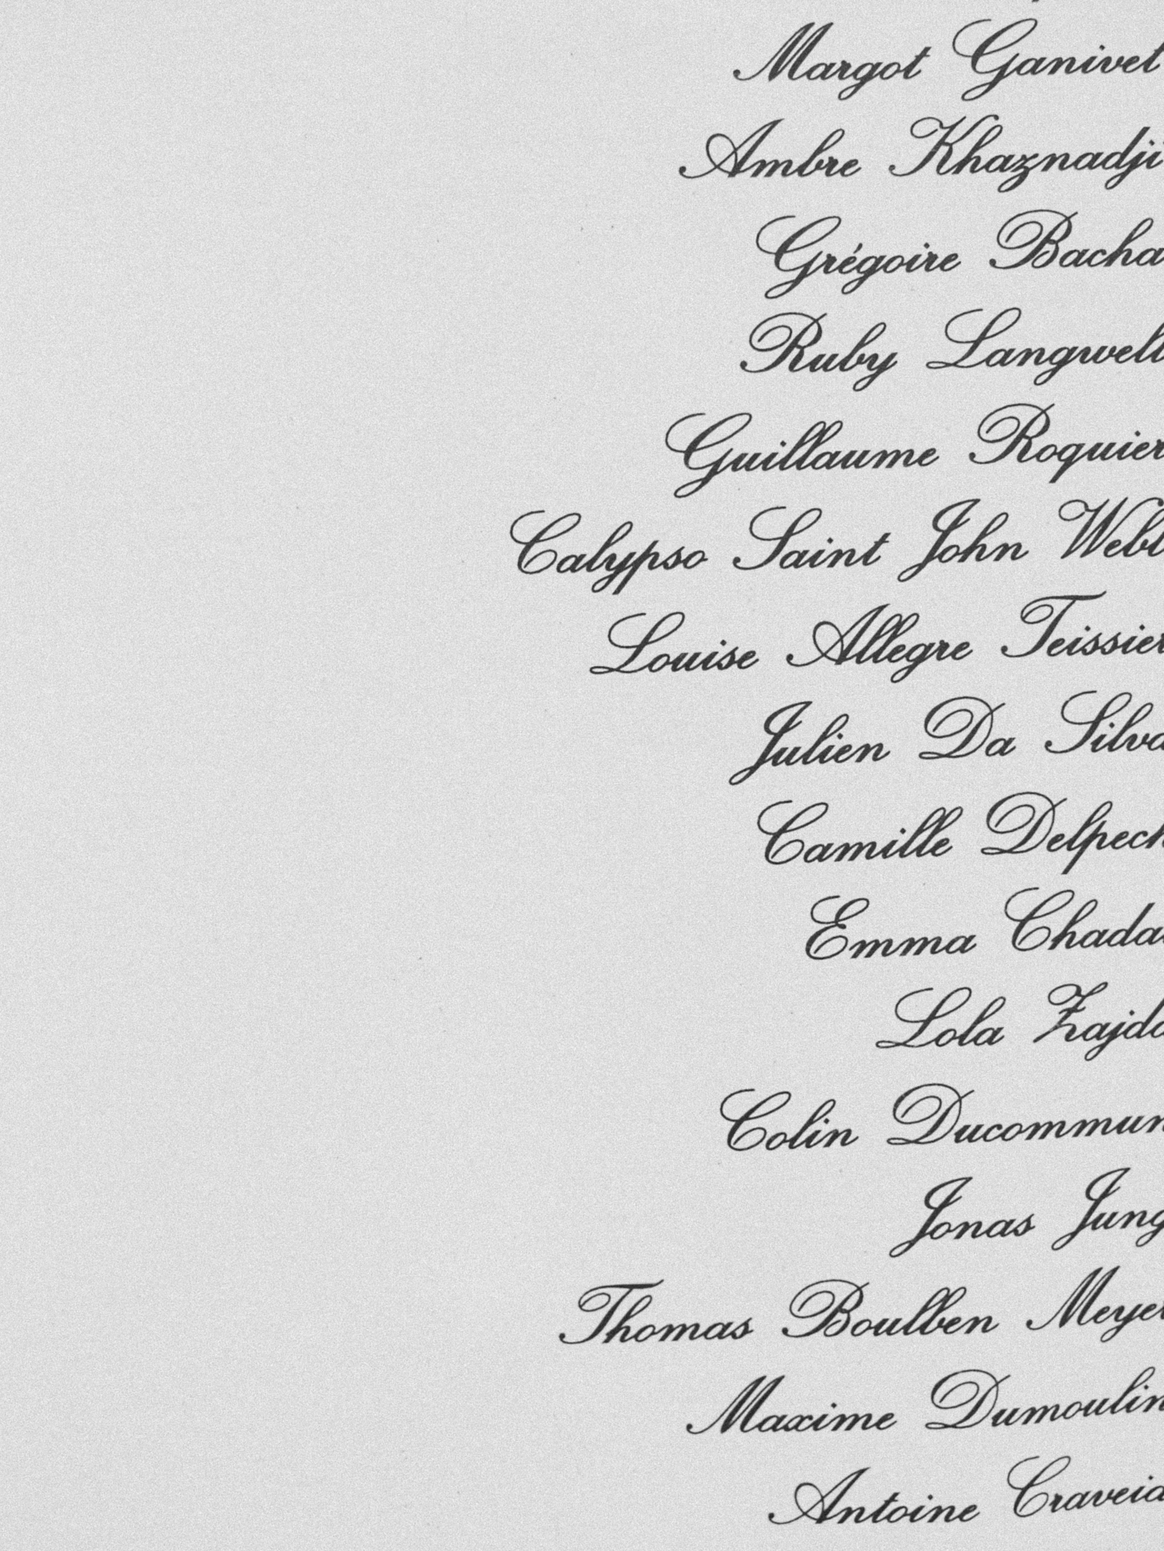 Margot Ganivet
Ambre Khaznadji
Grégoire Bacha
Ruby Langwell
Guillaume Roquier
Calypso Saint John
Louise Allegre Teissier
Julien Da Silva
Camille Delpech
Emma
Lola
Colin Ducommun
Jonas Jung
Thomas Boulben Meyer
Maxime Dumoulin
Antoine